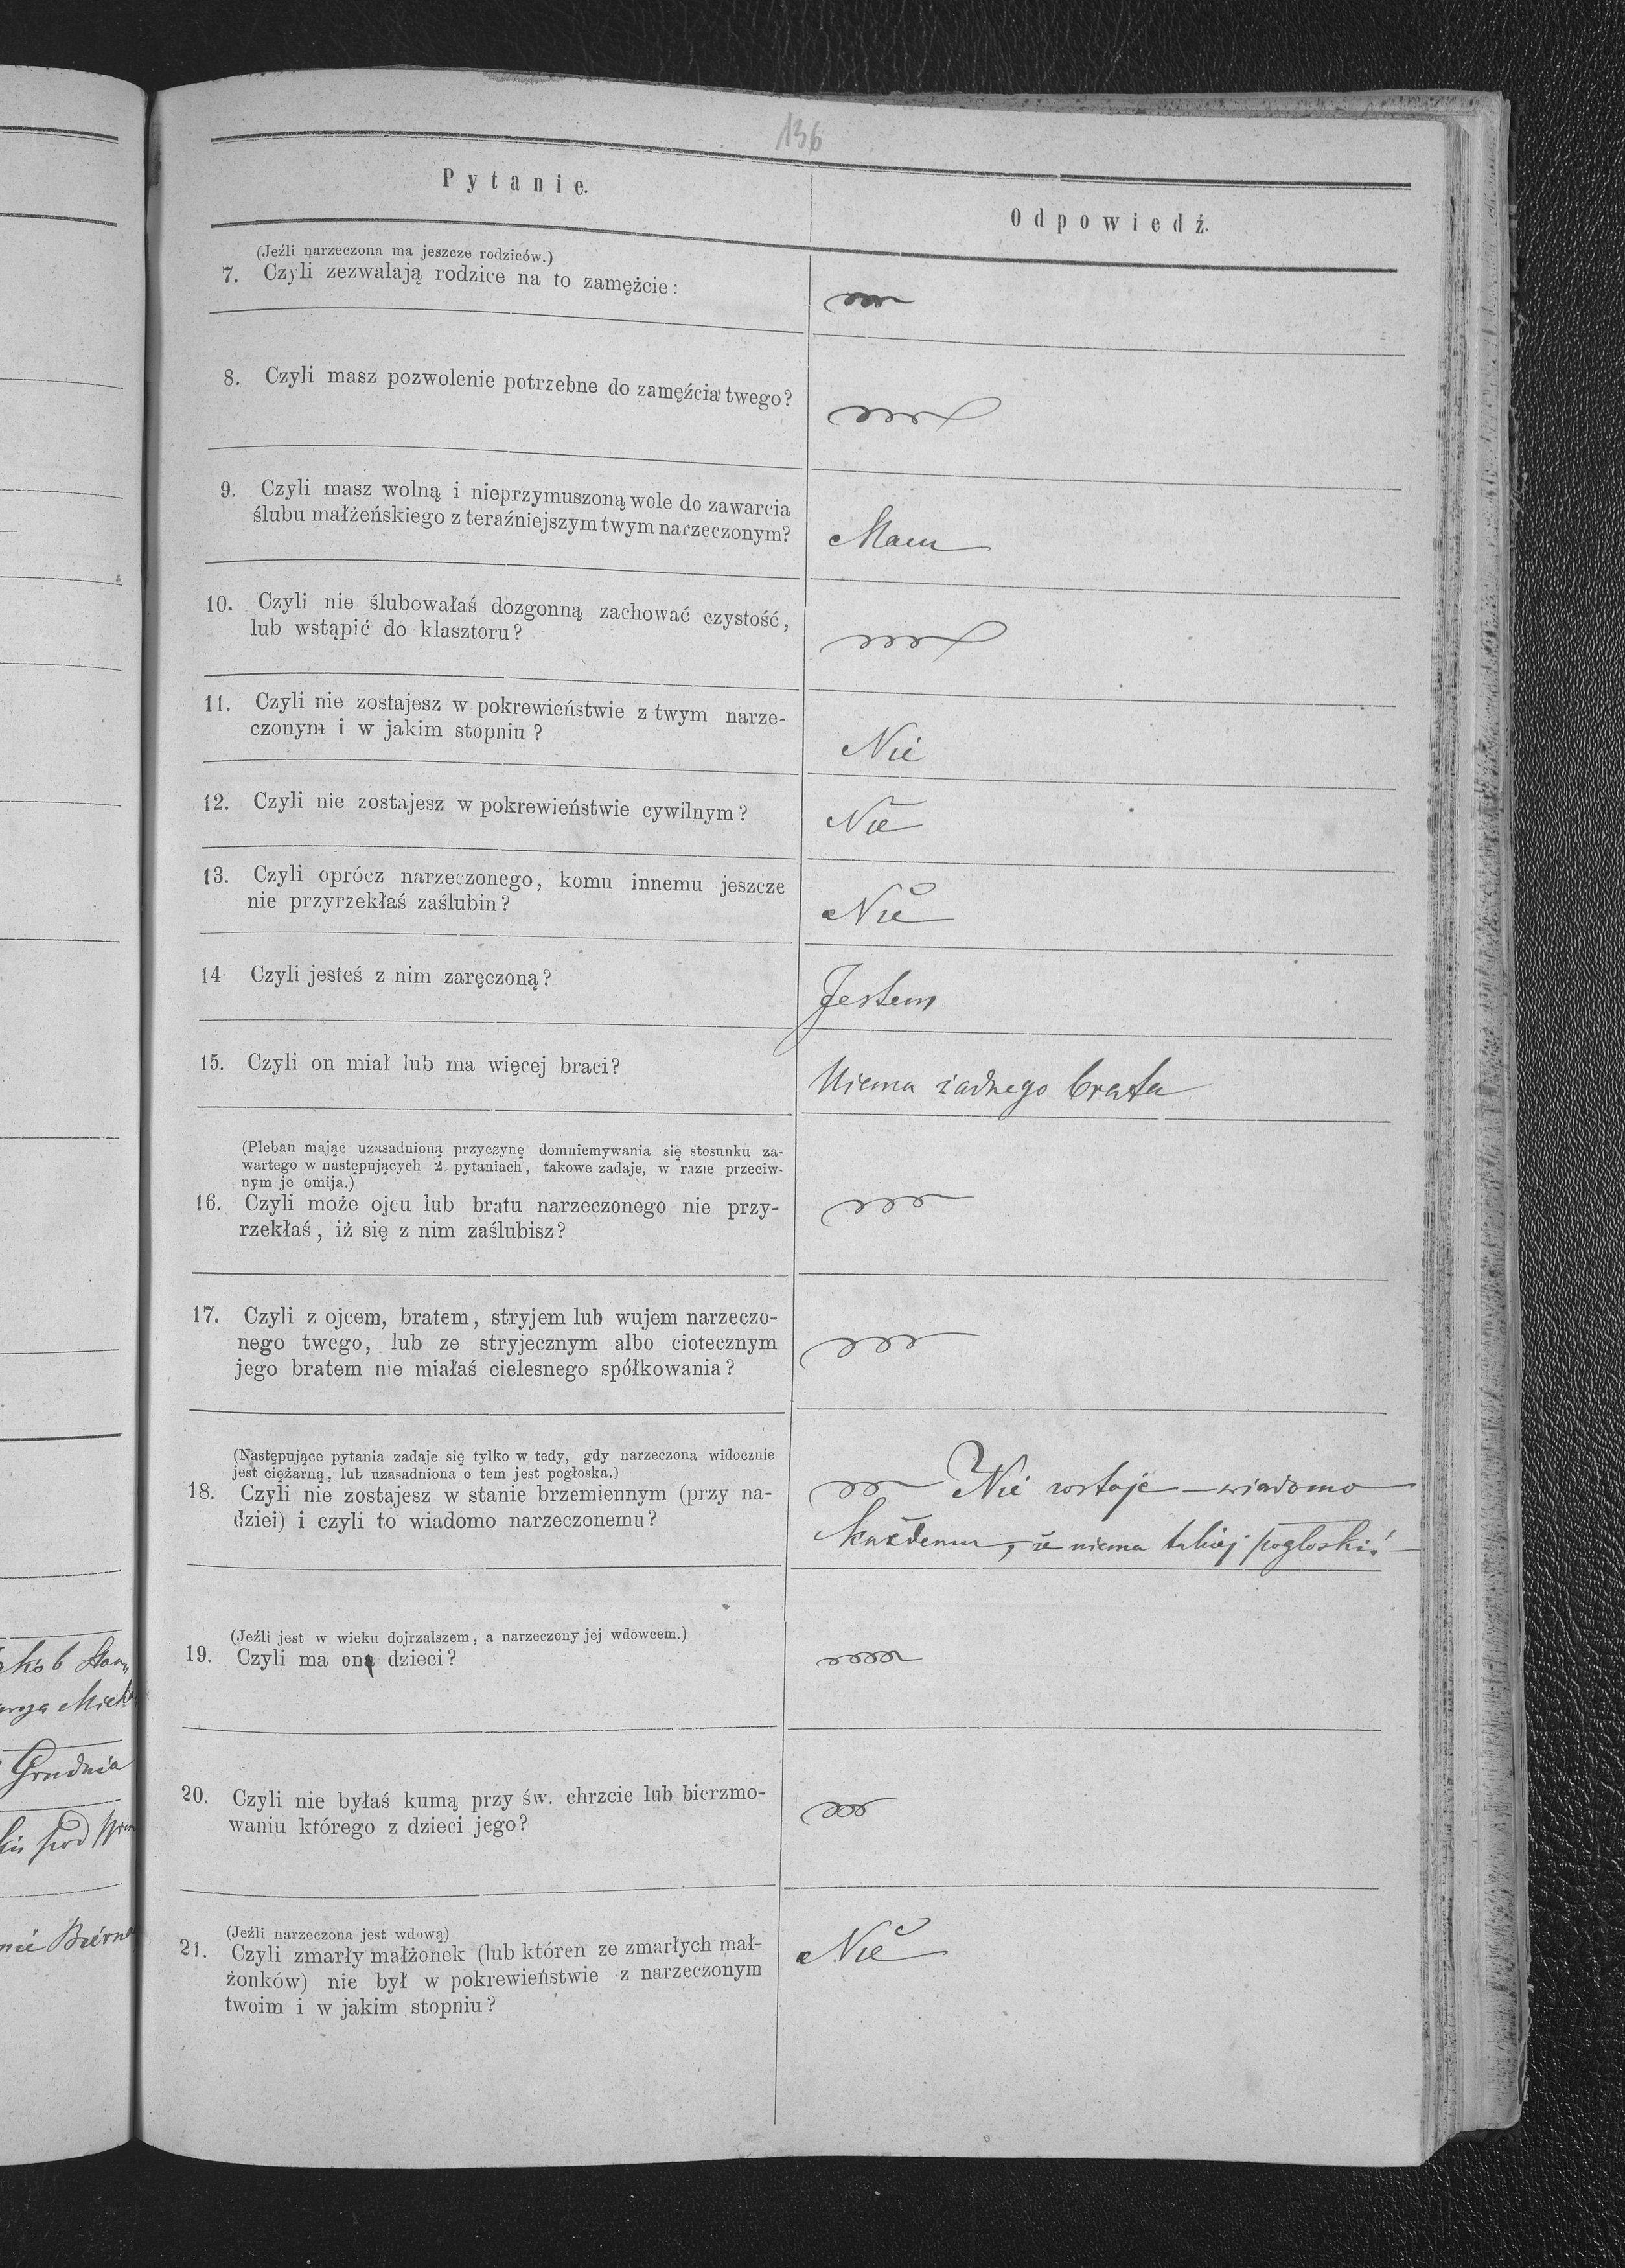 136
Pytanie.
Odpowiedź.
(Jeźli narzeczona ma jeszcze rodziców.)
7. Czyli zezwalają rodzice na to zamężcie:
8. Czyli masz pozwolenie potrzebne do zamęźcia twego?
9. Czyli masz wolną i nieprzymuszoną wole do zawarcia
ślubu małżeńskiego z teraźniejszym twym narzeczonym?
Mam
10. Czyli nie ślubowałaś dozgonną zachować czystość,
lub wstąpić do klasztoru?
11. Czyli nie zostajesz w pokrewieństwie z twym narze-
czonym i w jakim stopniu?
Nie
12. Czyli nie zostajesz w pokrewieństwie cywilnym?
Nie
13. Czyli oprócz narzeczonego, komu innemu jeszcze
nie przyrzekłaś zaślubin?
Nie
14. Czyli jesteś z nim zaręczoną?
Jestem
15. Czyli on miał lub ma więcej braci?
Niema żadnego brata
(Pleban mając uzasadnioną przyczynę domniemywania się stosunku za-
wartego w następujących 2 pytaniach, takowe zadaje, w razie przeciw-
nym je omija.)
16. Czyli może ojcu lub bratu narzeczonego nie przy-
rzekłaś, iż się z nim zaślubisz?
17. Czyli z ojcem, bratem, stryjem lub wujem narzeczo-
nego twego, lub ze stryjecznym albo ciotecznym
jego bratem nie miałaś cielesnego spółkowania?
(Następujące pytania zadaje się tylko w tedy, gdy narzeczona widocznie
jest ciężarną, lub uzasadniona o tem jest pogłoska.)
18. Czyli nie zostajesz w stanie brzemiennym (przy na-
dziei) i czyli to wiadomo narzeczonemu?
Nie zostaje – wiadomo
każdemu, że niema takiej pogłoski! –
(Jeźli jest w wieku dojrzalszem, a narzeczony jej wdowcem.)
19. Czyli ma ona dzieci?
20. Czyli nie byłaś kumą przy św. chrzcie lub bierzmo-
waniu którego z dzieci jego?
(Jeźli narzeczona jest wdową)
21. Czyli zmarły małżonek (lub któren ze zmarłych mał-
żonków) nie był w pokrewieństwie z narzeczonym
twoim i w jakim stopniu?
Nie
Grudnia
pod